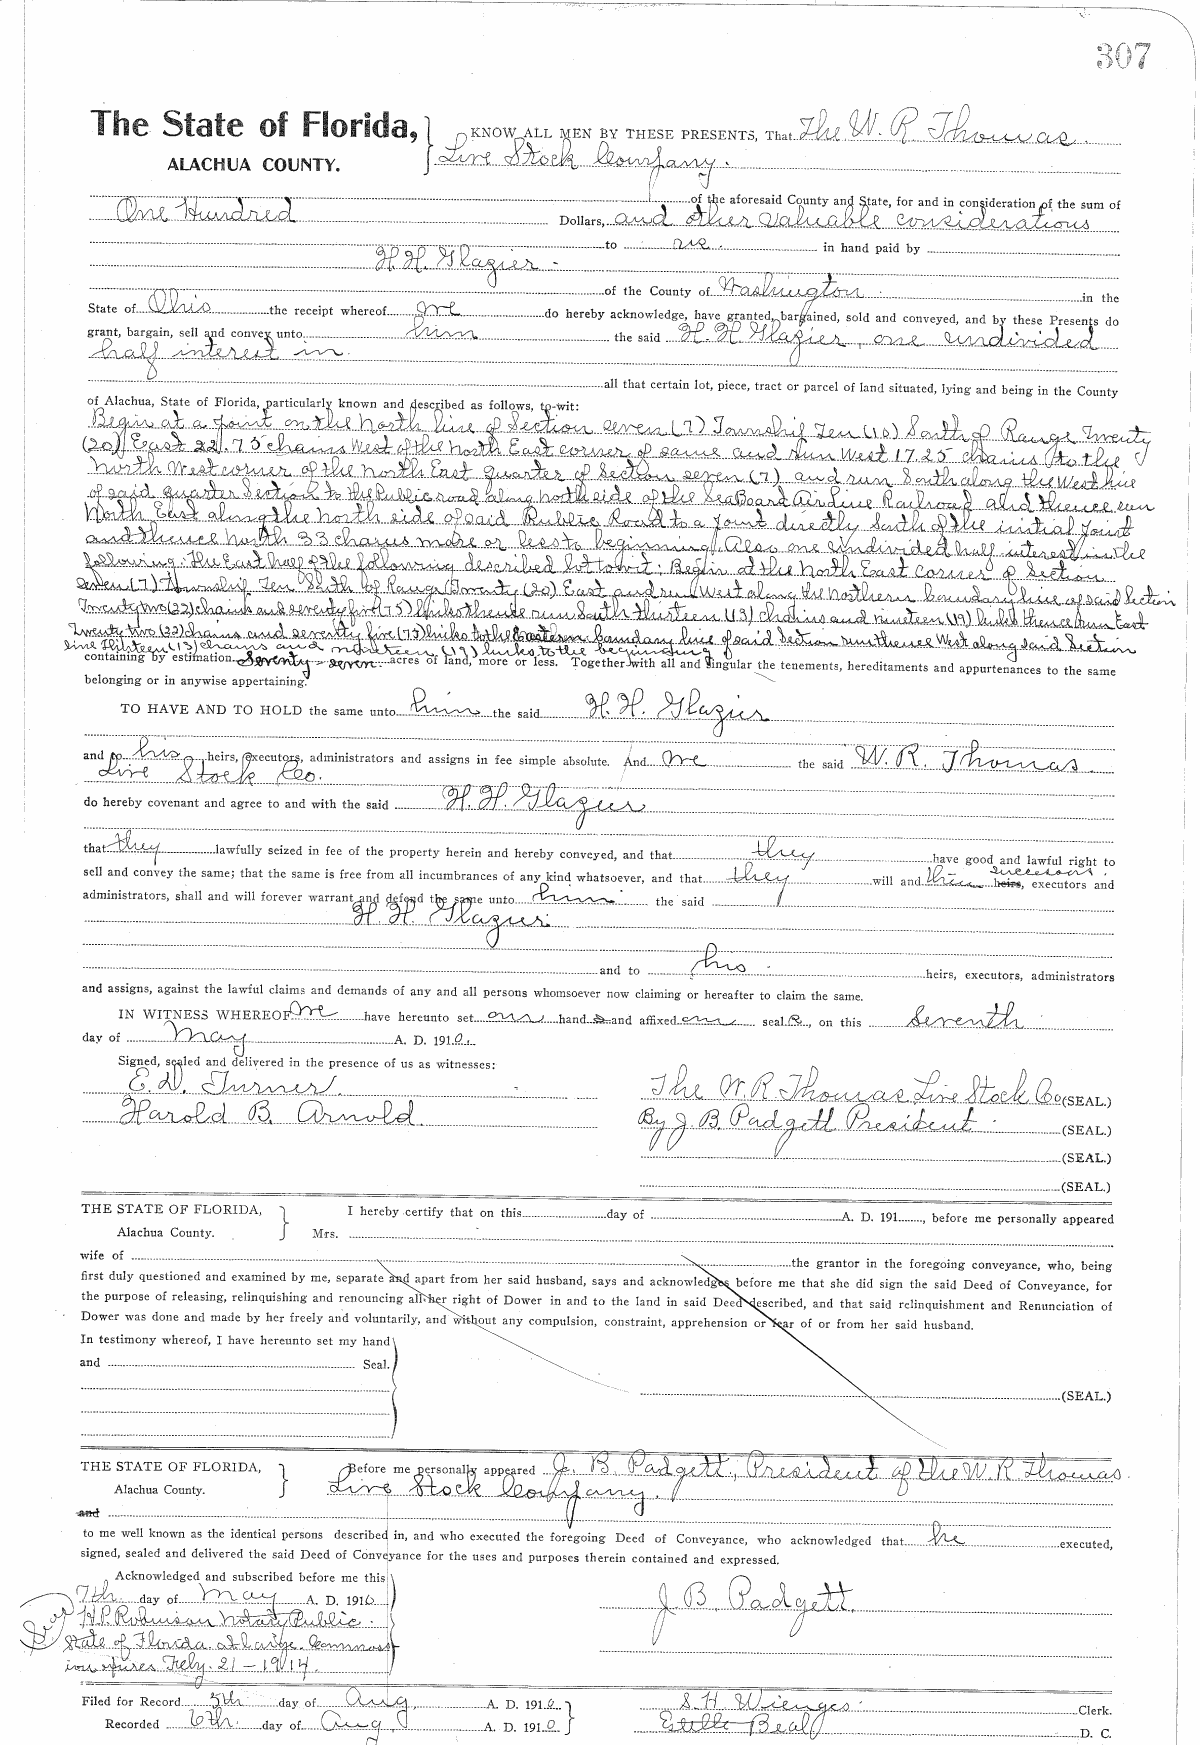 307
The State of Florida, KNOW ALL MEN BY THESE PRESENTS, That The W. R Thomas
ALACHUA COUNTY. Live Stock Company.
of the aforesaid County and State, for and in consideration of the sum of
One Hundred Dollars, and other valuable considerations
to us. in hand paid by
H. H. Glazier
of the County of Washington in the
State of Ohio the receipt whereof we do hereby acknowledge, have granted, bargained, sold and conveyed, and by these Presents do
grant, bargain, sell and convey unto him the said H. H Glazier, one undivided
half interest in
all that certain lot, piece, tract or parcel of land situated, lying and being in the County
of Alachua, State of Florida, particularly known and described as follows, to-wit:
Begin at a point on the North line of Section seven (7) Township Ten (10) South of Range Twenty
(20) East 22.75 chains West of the North East corner of same and run West 17.25 chains to the
North West corner of the North East quarter of Section seven (7) and run South along the West line
of said quarter Section to the Public road along north side of the Sea Board Air Line Railroad and thence run
North East along the North side of said Public Road to a point directly South of the initial point
and thence North 33 chains more or less to beginning. Also one undivided half interest in the
following: The East half of the following described lot to wit: Begin at the North East corner of Section
seven (7) Township Ten South of Range Twenty (20) East and run West along the Northern boundary line of said Section
Twenty two (22) chains and seventy five (75) links thence run South thirteen (13) chains and nineteen (19) links thence run East
Twenty two (22) chains and seventy five (75) links to the Eastern boundary line of said Section run thence West along said Section
line thirteen (13) chains and nineteen (19) links to the beginning
containing by estimation Seventy-seven acres of land, more or less. Together with all and singular the tenements, hereditaments and appurtenances to the same
belonging or in anywise appertaining.
TO HAVE AND TO HOLD the same unto him the said H. H. Glazier
and to his heirs, executors, administrators and assigns in fee simple absolute. And we the said W. R. Thomas
Live Stock Co.
do hereby covenant and agree to and with the said H. H. Glazier
that they lawfully seized in fee of the property herein and hereby conveyed, and that they have good and lawful right to
sell and convey the same; that the same is free from all incumbrances of any kind whatsoever, and that they will and their successors heirs, executors and
administrators, shall and will forever warrant and defend the same unto him the said
H. H Glazier
and to his heirs, executors, administrators
and assigns, against the lawful claims and demands of any and all persons whomsoever now claiming or hereafter to claim the same.
IN WITNESS WHEREOF we have hereunto set our hand s and affixed our seal s, on this Seventh
day of May A. D. 1910.
Signed, sealed and delivered in the presence of us as witnesses:
E. D. Turner The W. R Thomas Live Stock Co (SEAL.)
Harold B. Arnold. By J. B. Padgett President (SEAL.)
(SEAL.)
(SEAL.)
THE STATE OF FLORIDA, I hereby certify that on this day of A. D. 191, before me personally appeared
Alachua County. Mrs.
wife of the grantor in the foregoing conveyance, who, being
first duly questioned and examined by me, separate and apart from her said husband, says and acknowledges before me that she did sign the said Deed of Conveyance, for
the purpose of releasing, relinquishing and renouncing all her right of Dower in and to the land in said Deed described, and that said relinquishment and Renunciation of
Dower was done and made by her freely and voluntarily, and without any compulsion, constraint, apprehension or fear of or from her said husband.
In testimony whereof, I have hereunto set my hand
and Seal.
(SEAL.)
THE STATE OF FLORIDA, Before me personally appeared J. B. Padgett, President of the W. R Thomas
Alachua County. Live Stock Company.
and
to me well known as the identical persons described in, and who executed the foregoing Deed of Conveyance, who acknowledged that he executed,
signed, sealed and delivered the said Deed of Conveyance for the uses and purposes therein contained and expressed.
Acknowledged and subscribed before me this
7th day of May A. D. 1910. J. B. Padgett.
Seal H. P. Robinson Notary Public.
State of Florida. at large. Commiss
ion expires Feby. 21-1914.
Filed for Record 5th day of Aug. A. D. 1910. S. H. Wienges Clerk.
Recorded 6th. day of Aug A. D. 1910. Estelle Beal D. C.